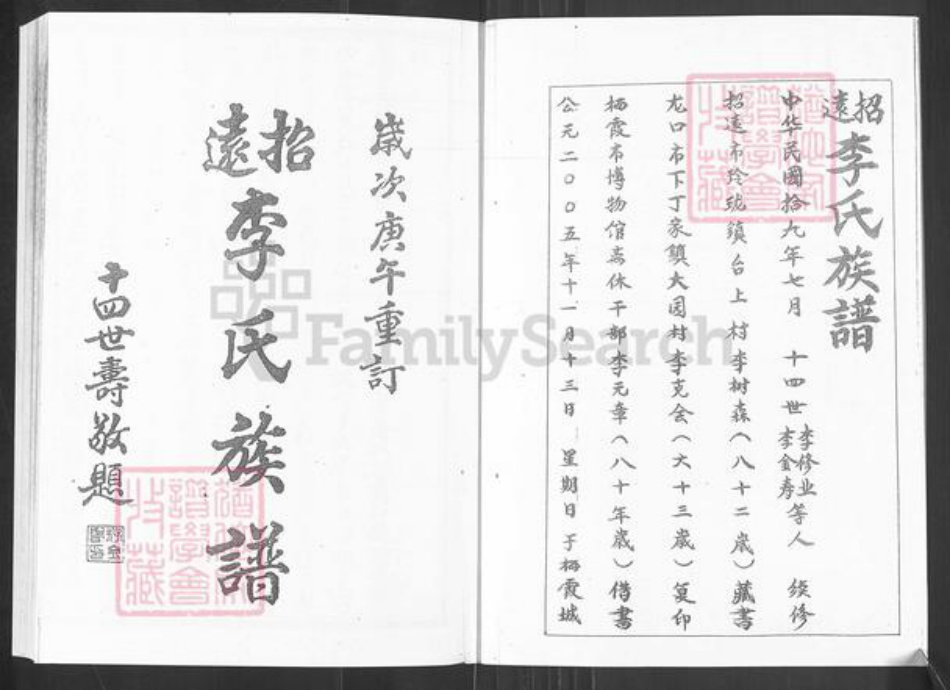 招遠
李氏族譜
中华民國拾九年七月 十四世 李修业 李金寿 等人 续修
招遠市玲珑鎮台上村李树森(八十二歲)藏書
龙口市下丁家鎮大园村李克会(六十三歲)复印
栖霞市博物馆离休干部李元章(八十年歲)借書
公元二00五年十一月十三日 星期日于栖霞城
歲次庚午重訂
招遠
李氏族譜
十四世壽敬題
譜學會
收藏
譜學會
收藏
FamilySearch